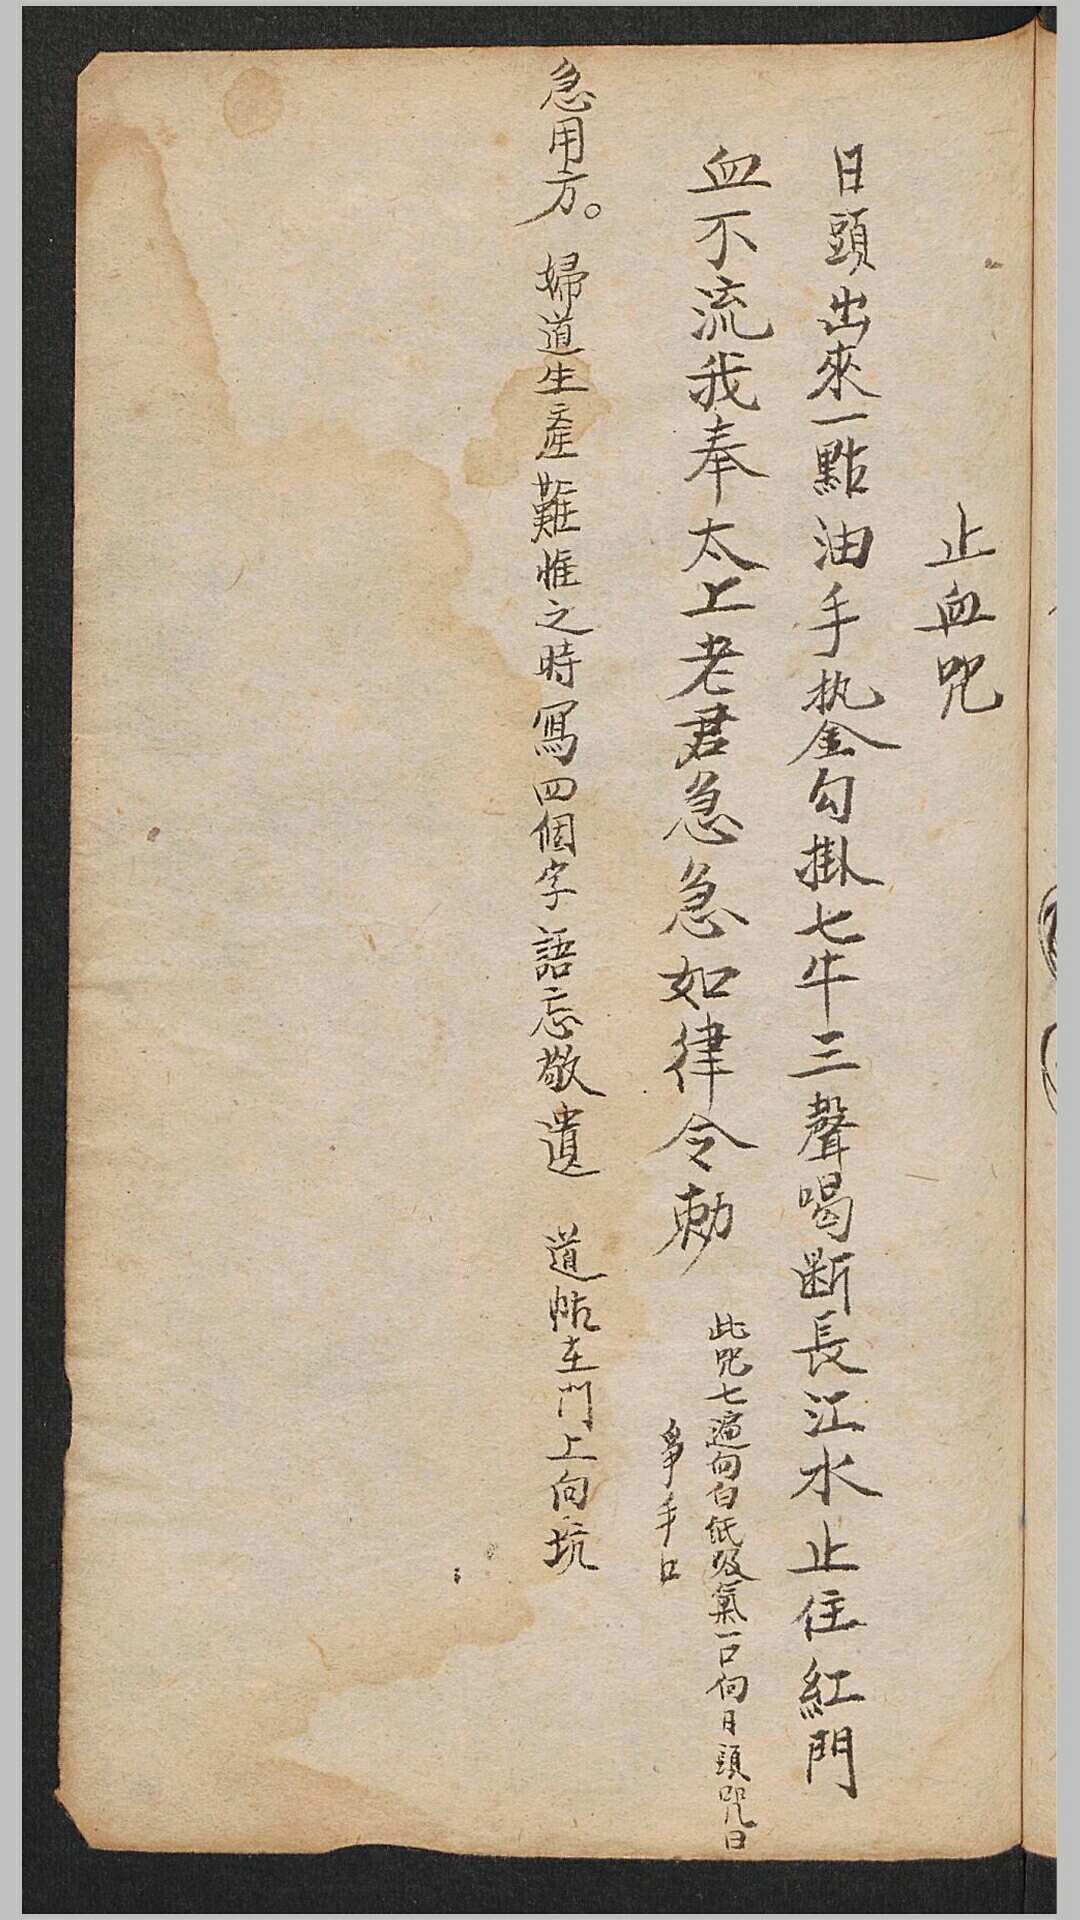 止血咒
日頭出來一點油手执金勾掛七牛三聲喝断長江水止住紅門
血不流我奉太上老君急急如律令勅
此咒七遍向白紙吸氣一口向日頭咒日
手口
急用方。婦道生產難惟之時寫四個字語忘敬遺 道帖在門上向坑